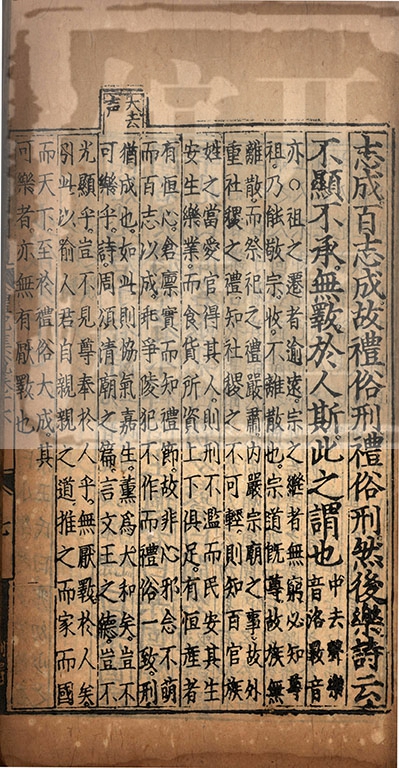 大去
聲
志成百志成故禮俗刑禮俗刑然後樂詩云
不顯不承無斁於人斯此之謂也中去聲樂
音洛斁音
亦○祖之遷者逾遠宗之繼者無窮必知尊
祖乃能敬宗收不離散也宗道既尊故族無
離散而祭祀之禮嚴肅内嚴宗廟之事故外
重社稷之禮知社稷之不可輕則知百官族
姓之當愛官得其人則刑不濫而民安其生
安生樂業而食貨所資上下俱足有恒產者
有恒心倉廩實而知禮節故非心邪念不萌
而百志以成乖爭陵犯不作而禮俗一致刑
猶成也如此則協氣嘉生薰爲大和矣豈不
可樂乎詩周頌清廟之篇言文王之德豈不
光顯乎豈不見尊奉於人乎無厭斁於人矣
引此以喻人君自親親之道推之而家而國
而天下至於禮俗大成其
可樂者亦無有厭斁也